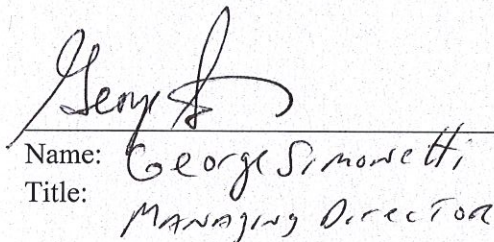 George S
Name: George Simonetti
Title:
Managing Director